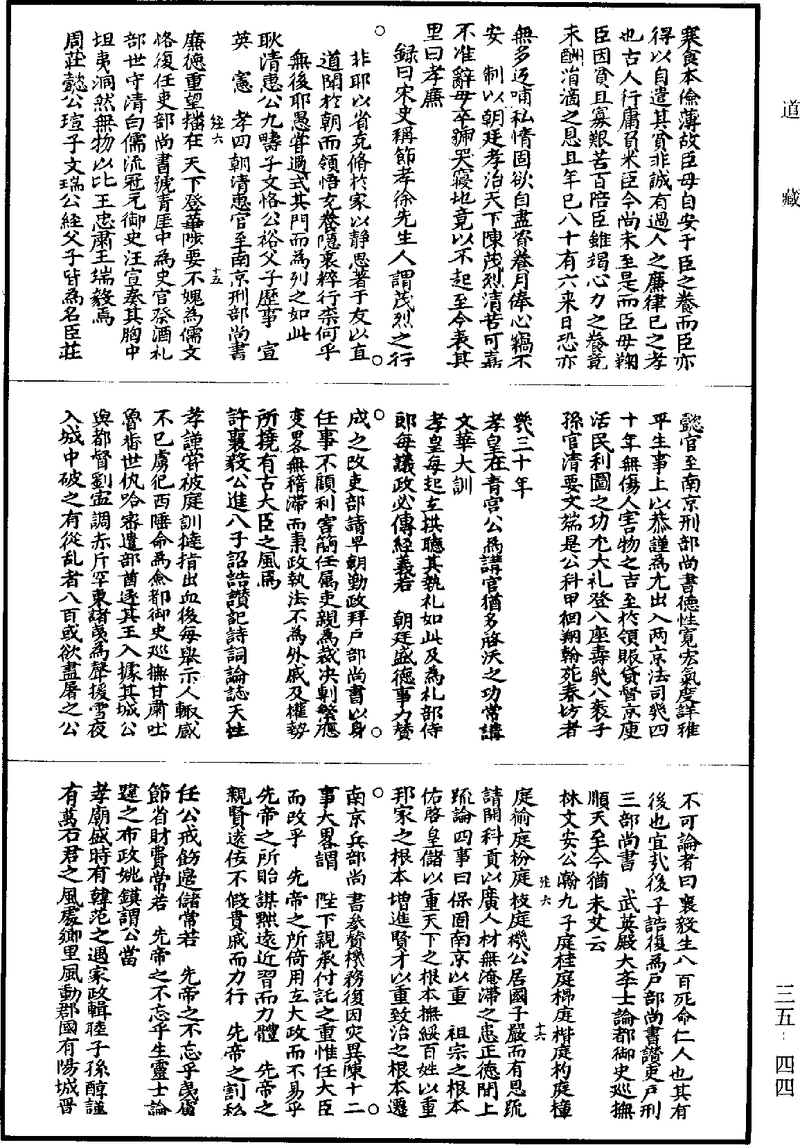 道藏
三五·四四
寒食本儉薄故臣母自安于臣之養而臣亦
得以自遣其貧非誠有過人之廉律已之孝
也古人行庸負米臣今尚未至是而臣母鞠
臣因貧且寡艱苦百陪臣雖竭心力之養竟
未酬涓滴之恩且年已八十有六来日恐亦
無多返哺私情固欲自盡資養月俸心竊不
安 制以朝廷孝治天下陳茂烈清苦可嘉
不准辭母卒痛哭寢地竟以不起至今表其
里曰孝廉
錄曰宋史稱節孝徐先生人謂茂烈之行
非耶以省克脩於家以静思著于友以直
道聞於朝而領悟充養隱衷粹行柰何乎
無後耶愚嘗過式其門而為列之如此
耿清惠公九疇子文恪公裕父子歴事 宣
英 憲 孝四朝清惠官至南京刑部尚書
廉德重望播在天下登華陟要不媿為儒文
恪復任吏部尚書號青厓中為史官祭酒礼
部世守清白儒流冠冗御史汪宣奏其胸中
坦夷洞然無物以比王忠肅王端毅焉
周莊懿公瑄子文瑞公經父子皆為名臣莊
十五
懿官至南京刑部尚書德性寛宏氣度詳雅
平生事上以恭謹為尤出入两京法司㡬四
十年無傷人害物之吉至於領賑貸督京庾
活民利國之功尤大礼登八座壽㡬八袠子
孫官清要文端是公科甲徊翔翰苑春坊者
㡬三十年
孝皇在青宮公為講官猶多啓沃之功常講
文華大訓
孝皇每起立拱聽其執礼如此及為礼部侍
郎每議政必傳經義若 朝廷盛德事力賛
成之改吏部請早朝勤政拜戸部尚書以身
任事不顧利害簡任属吏親為裁决剸繁應
變畧無稽滞而秉政執法不為外戚及權勢
所撓有古大臣之風焉
許襄毅公進八子詔誥讚記詩詞論誌天性
孝謹嘗被庭訓撻指出血後每舉示人輙感
不已虜犯西陲命為僉都御史巡撫甘肅吐
魯番世仇哈宻遣部酋逐其王入據其城公
與都督劉寕調赤斤罕東諸戎為聲援雪夜
入城中破之有從乱者八百或欲盡屠之公
不可論者曰襄毅生八百死命仁人也其有
後也宜㢤後子誥復為戸部尚書讚吏戸刑
三部尚書 武英殿大李士論都御史巡撫
順天至今猶未艾云
林文安公瀚九子庭桂庭㭿庭楷庭杓庭橦
十六
庭㮋庭枌庭枝庭機公居國子嚴而有恩疏
請開科貢以廣人材無淹滞之患正德間上
䟽論四事曰保固南京以重 祖宗之根本
佑啓皇儲以重天下之根本撫綏百姓以重
邦家之根本增進賢才以重致治之根本遷
南京兵部尚書参賛機務復因灾異陳十二
事大畧謂 陛下親承付託之重惟任大臣
而改乎 先帝之所倚用立大政而不易乎
先帝之所貽謀黙遠近習而力體 先帝之
親賢遠佞不假貴戚而力行 先帝之割私
任公戒飭邊儲常若 先帝之不忘乎戎虜
節省財費常若 先帝之不忘乎生靈士論
韙之布政姚鏌謂公當
孝廟盛時有韓范之遇家政輯睦子孫醇謹
有萬石君之風處鄉里風動郡國有陽城晋